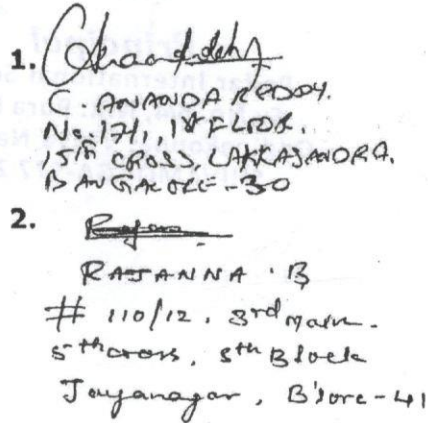 1.
C ANANDA REDDY.
No. 171, 1st FLOOR.
15th CROSS, LAKKASANDRA.
BANGALORE - 30
2.
RAJANNA . B
# 110/12, 3rd main.
5th cross, 5th Block
Jayanagar, B'lore - 41